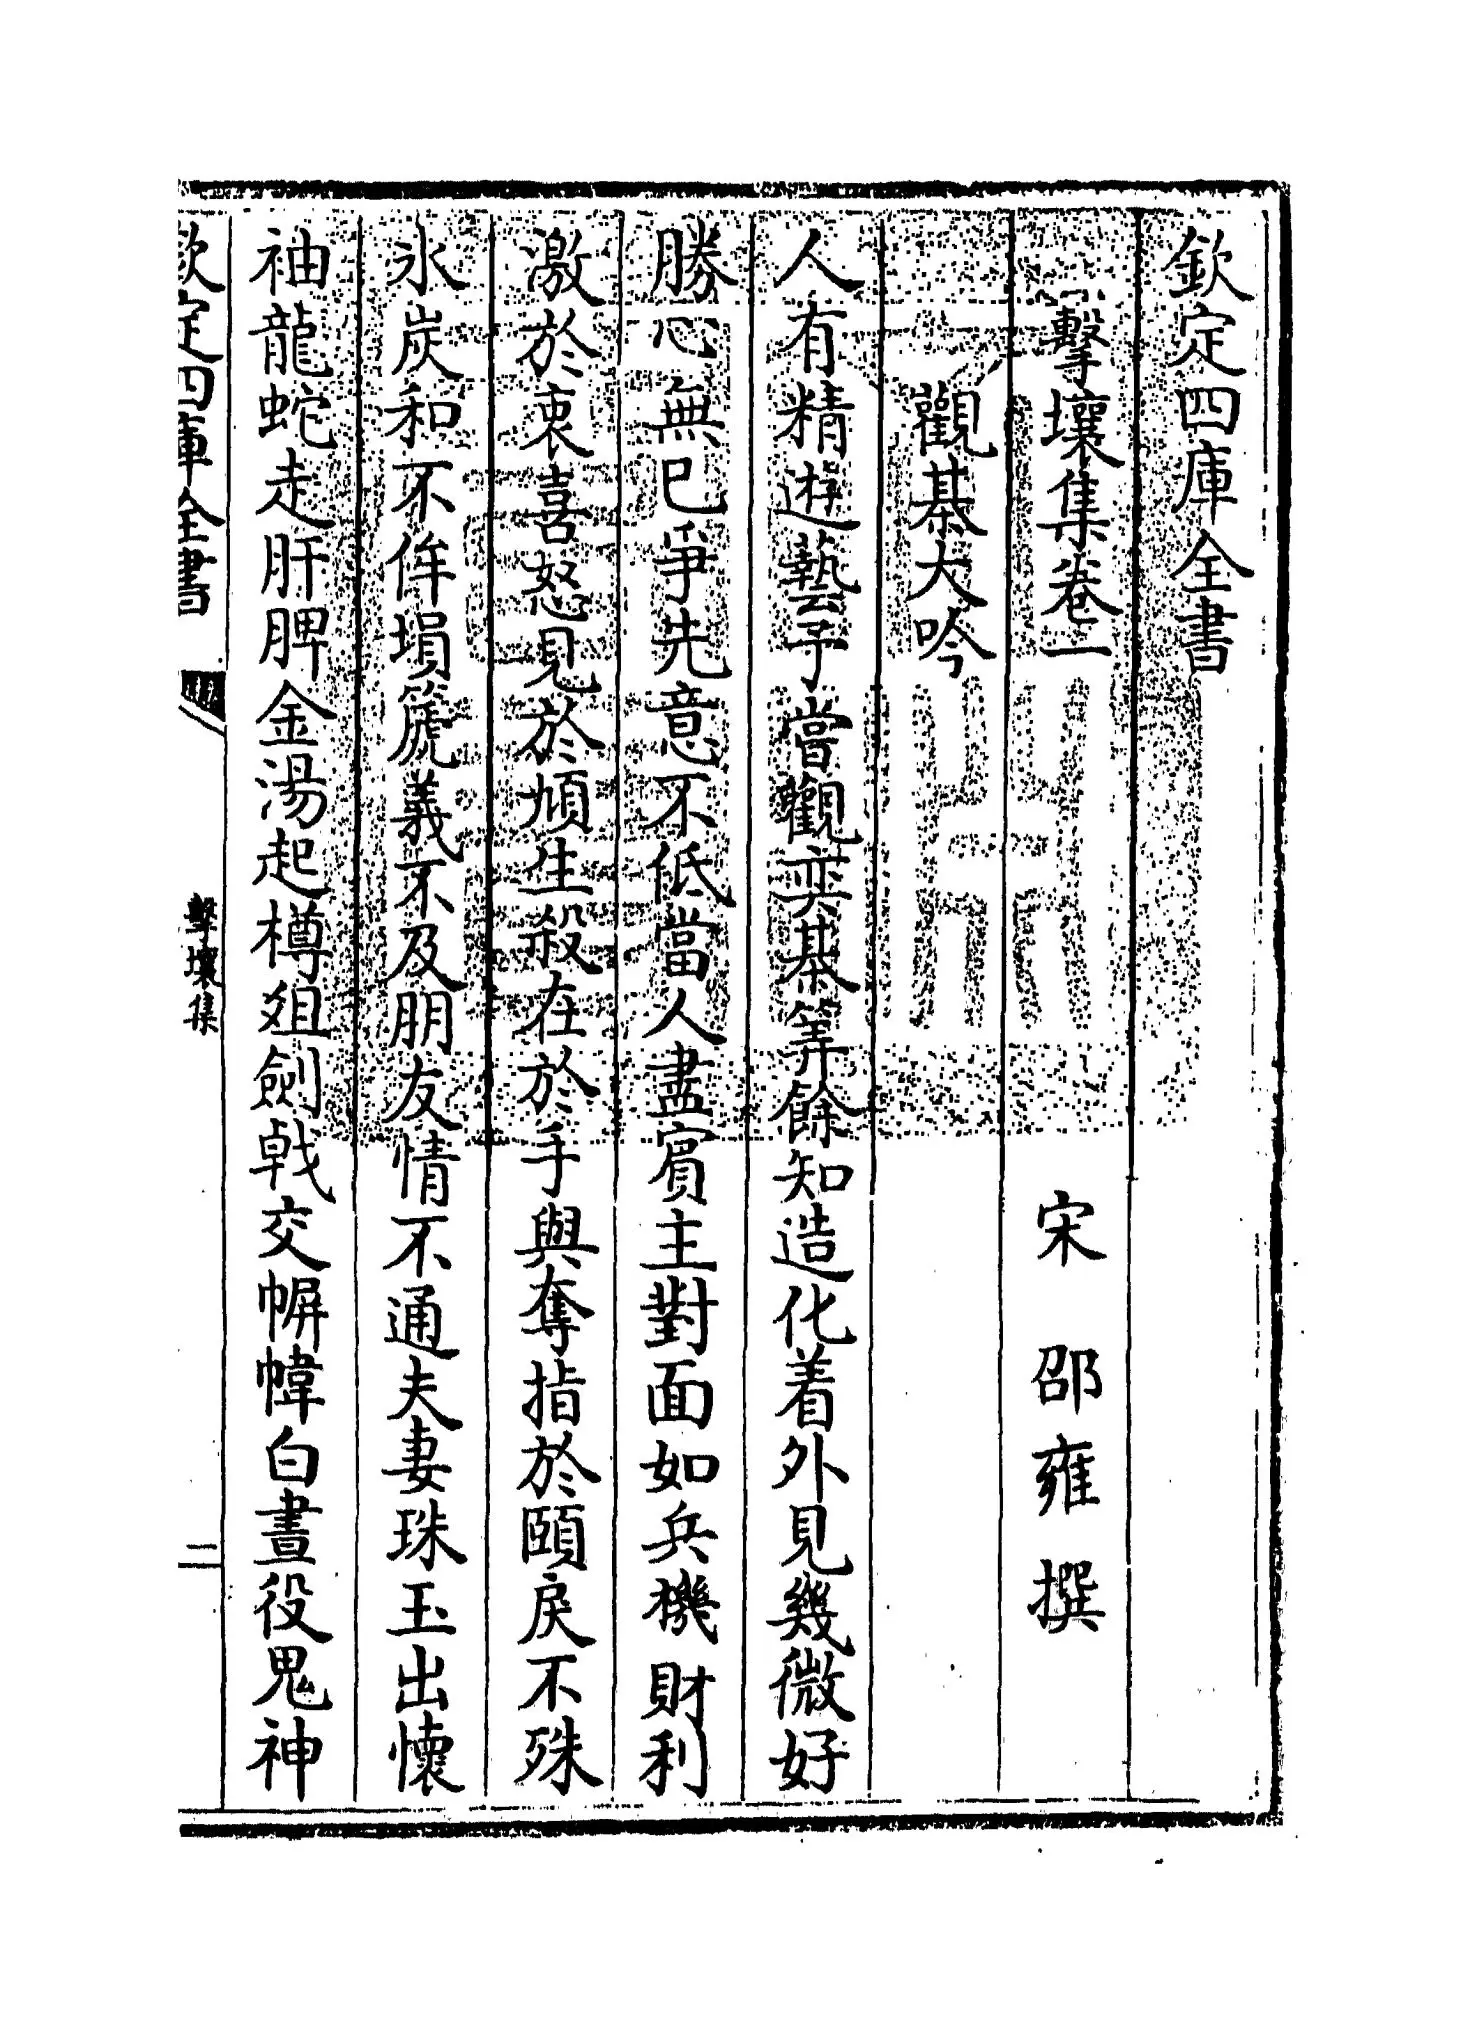 欽定四庫全書
擊壤集卷一
宋 邵雍 撰
觀棊大吟
人有精遊藝予嘗觀奕棊筭餘知造化着外見幾微好
勝心無已爭先意不低當人盡賓主對面如兵機財利
激於衷喜怒見於頄生殺在於手與奪指於頤戾不殊
冰炭和不侔塤篪義不及朋友情不通夫妻珠玉出懷
袖龍蛇走肝脾金湯起樽俎劍戟交帡幃白晝役鬼神
欽定四庫全書
擊壤集
二